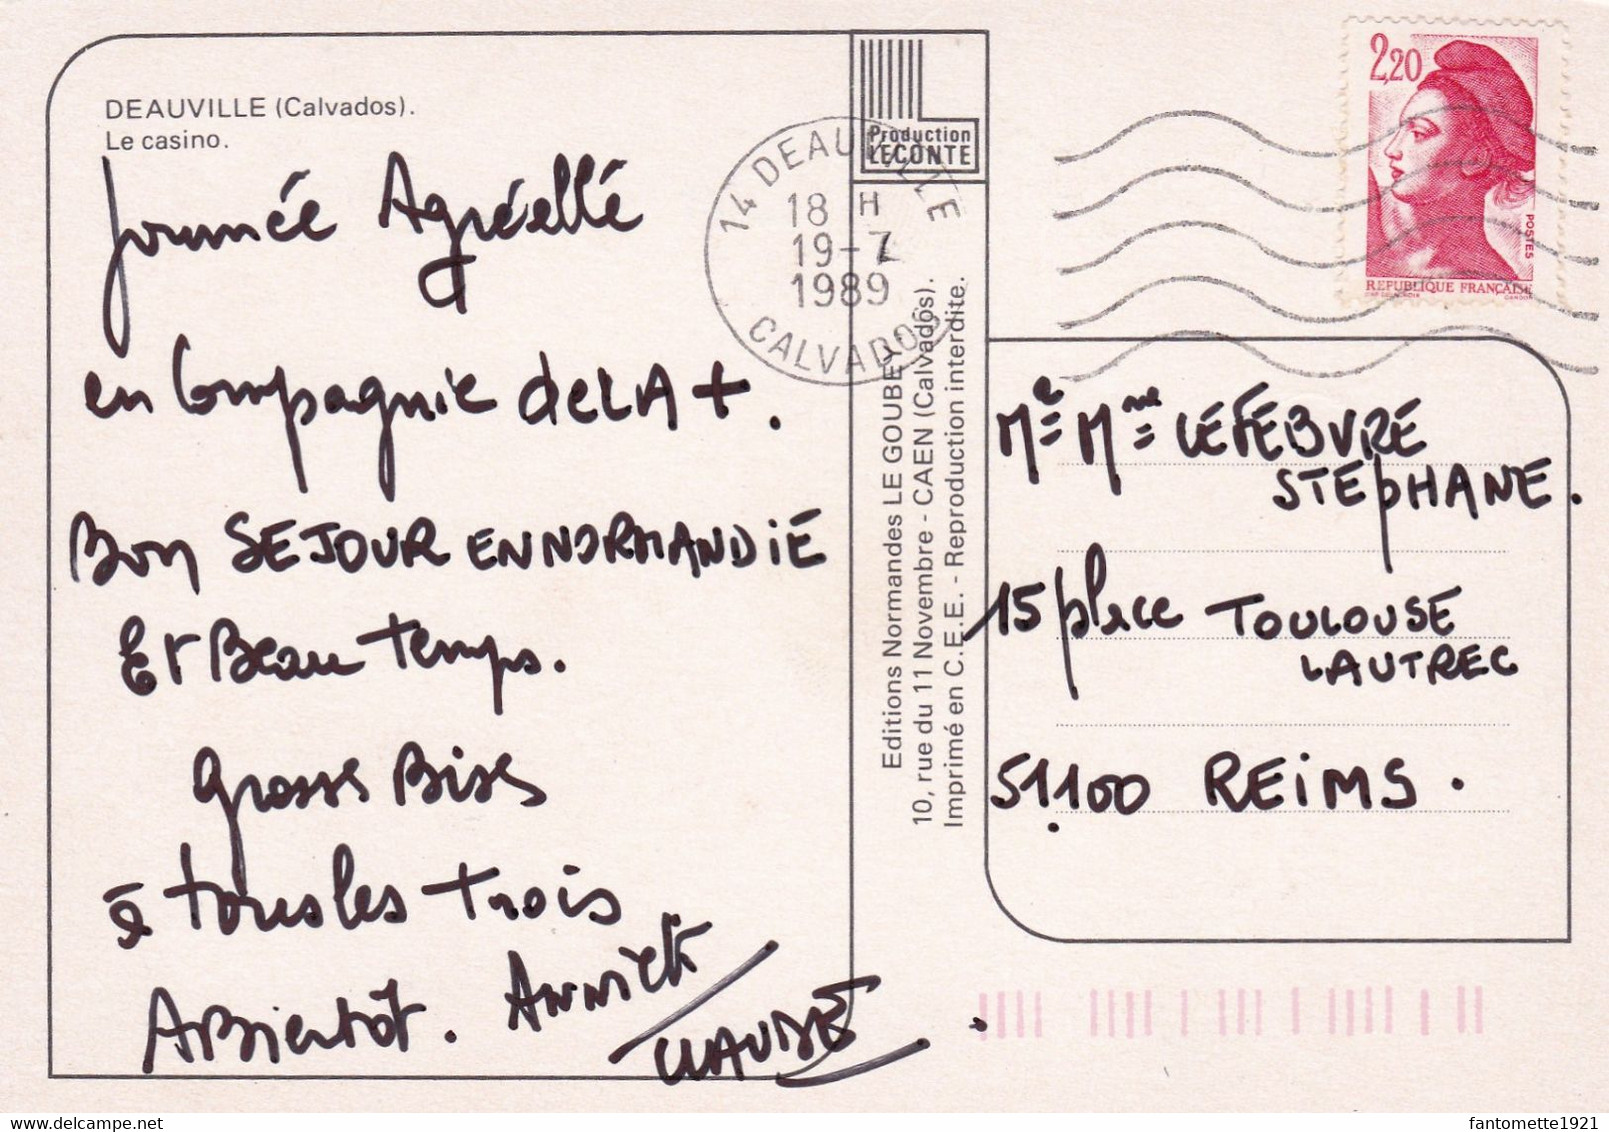 DEAUVILLE (Calvados).
Le casino.
Journée Agréellé
en Compagnie de LA +.
Bon SEJOUR EN NORMANDIE
Et Beau Temps.
Grosses Bises
à tous les Trois
A Bientôt. ANNICK
CLAUDE.
Production
LECONTE
14 DEAUVILLE
18 H
19-7
1989
CALVADOS
Editions Normandes LE GOUBEY
10, rue du 11 Novembre - CAEN (Calvados).
Imprimé en C.E.E. - Reproduction interdite.
2,20
POSTES
REPUBLIQUE FRANÇAISE
Mr Mme LEFEBVRE
STEPHANE.
15 place TOULOUSE
LAUTREC
51100 REiMS.
fantomette1921